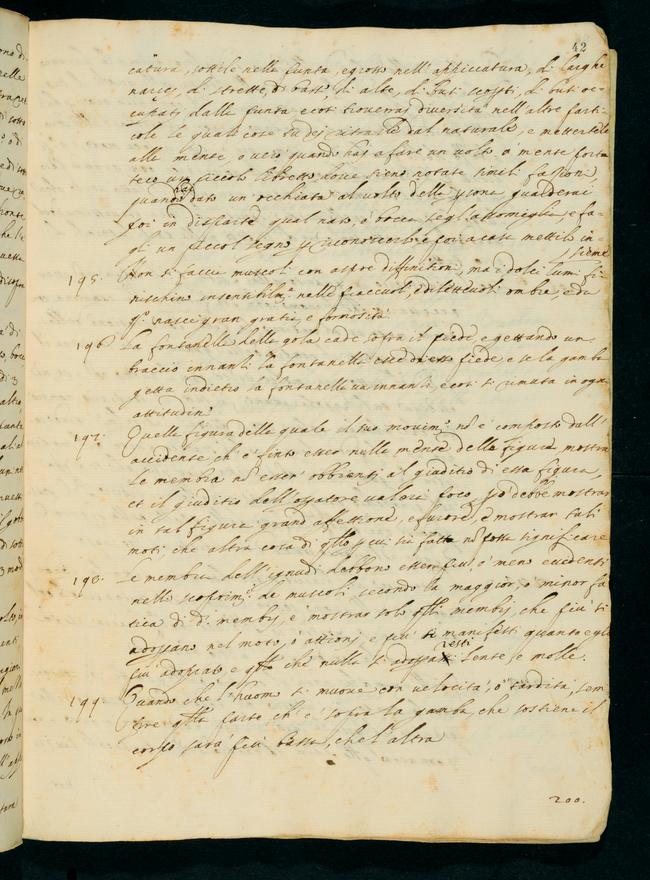 42
catura, sottile nella punta, e grosso nell'appiccatura, di larghe
narici, di strette, di basse, di alte, di buti scopti, di buti oc-
cupati dalla punta, e così troverai diversità nell'altre parti-
cole le quali cose tu dei ritrarle dal naturale, e mettertele
alla mente, o vero quando hai a fare un volto a mente porta
teco un piccolo libretto dove sieno notate simili fattioni
quando hai dato un'occhiata al volto della guarderai
poi in disparte qual naso, o bocca se gli assomiglia, e fa-
gli un piccol segno p riconoscerle poi a casa mettile in-
sieme
195. Non si faccia muscoli con aspre diffinitioni, ma i dolci lumi fi-
nischino insensibilm.e nelle piacevoli, e dilettevoli ombre, e da
q.o nasce gran gratia e formosità.
196. La fontanella della gola cade sopra il piede, e gettando un
braccio innanti la fontanella esce di esso piede, e se la gamba
getta indietro la fontanella va innanti, e così si rimuta in ogni
attitudine
197. Quella figura della quale il suo movim.o nõ è composto dall'
accidente ch'è finto esser nella mente della figura mostra
le membra nõ esser obbienti al giuditio di essa figura,
et il giuditio dell'operatore valere poco, p.ò debbe mostrar
in tal figura grand'affettione, e fuvore, e mostrar tali
moti che altra cosa di q.llo p cui sia fatta nõ possa significare
198. Le membra dell'ignudi debbono esser più, ò meno evidenti
nelli scoprim.ti de muscoli secondo la maggior, ò minor fa-
tica di d.i membri, e mostrar solo q.lli membri, che più si
adoprano nel moto, ò attioni, e più si manifesti quanto egli è
più adoprato, e q.llo che nulla si adopra resti lento, e molle.
199. Quando che l'huomo si muove con velocità, ò tardità, sem
pre q.lla parte ch'è sopra la gamba, che sostiene il
corpo sarà più bassa, che l'altra
200.